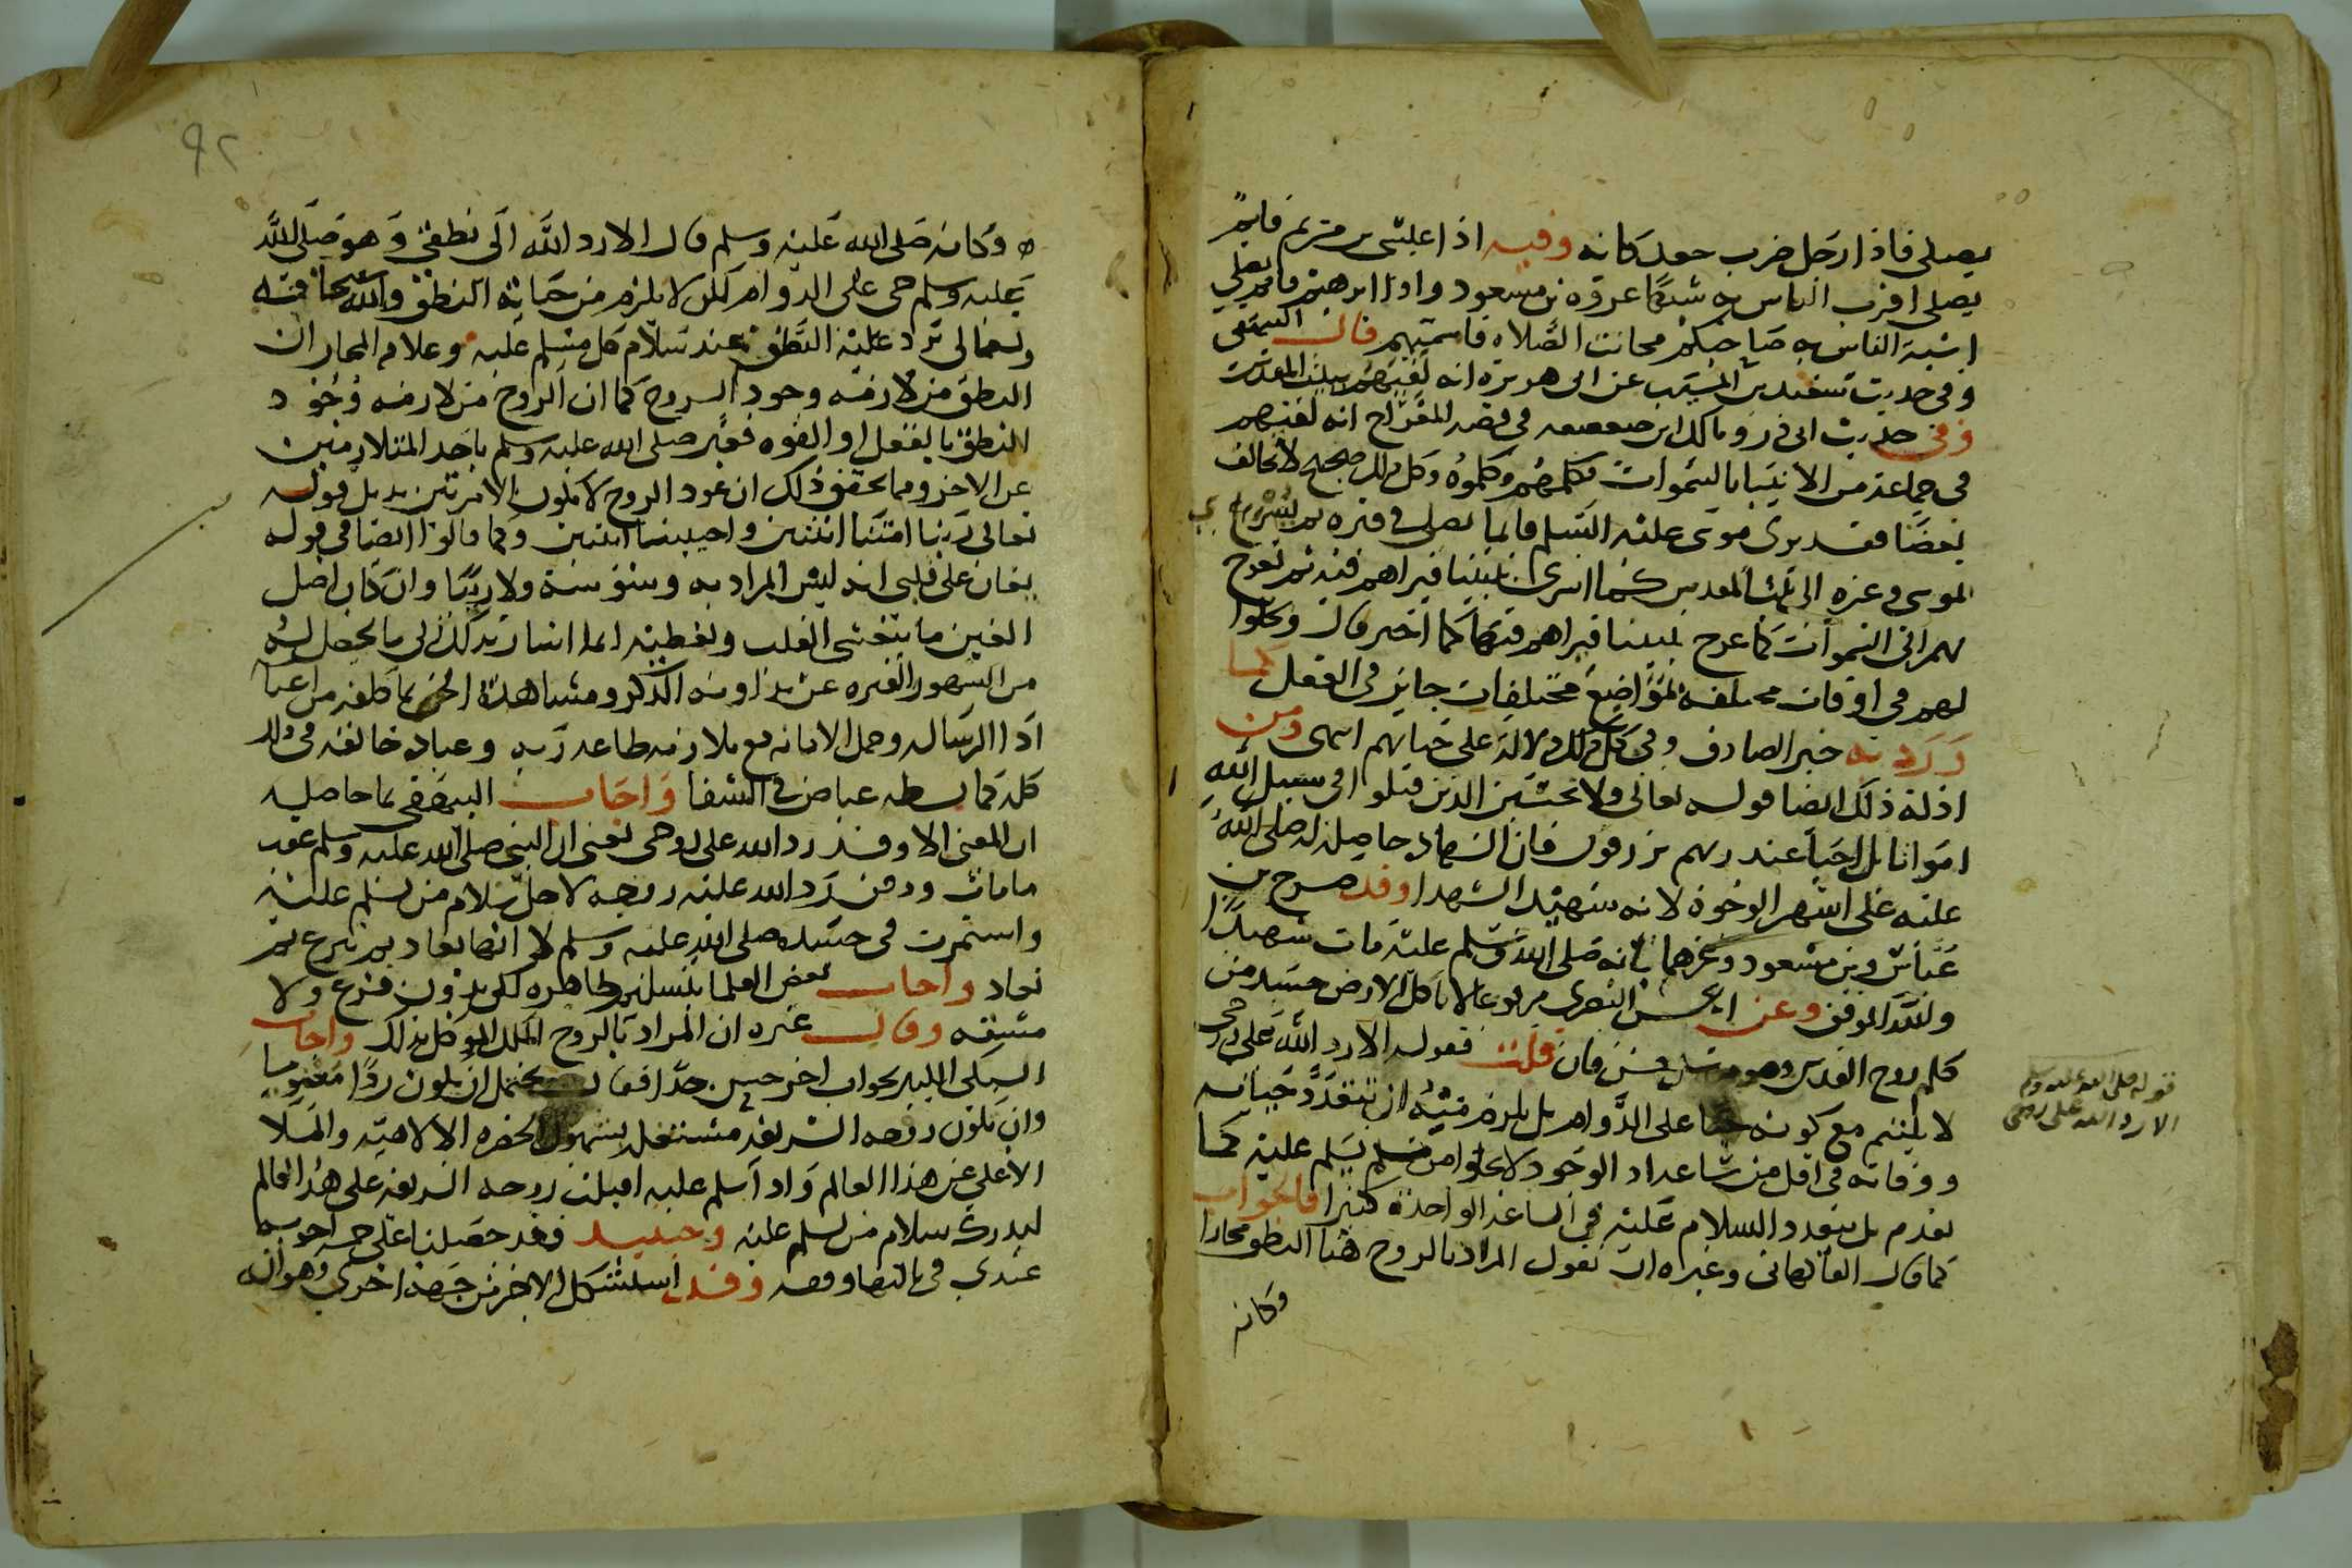 يصلي فاذا رجل ضرب جعد كانه وفيه اذا عيسى بن مريم قايم
يصلي اقرب الناس به شبها عروة بن مسعود واذا ابرهيم قايم يصلي
اشبه الناس به صاحبكم فحانت الصلاه فاممتهم قال البيهقي
وفي حديث سعيد بن المسيب عن ابي هريره انه لقيهم ببيت المقدس
وفي حديث ابي ذر ومالك ابن صعصعه في قصه المعراج انه لقيهم
في جماعة من الانبيا بالسموات فكلمهم وكلموه وكل ذلك صحيح لا يخالف
بعضا فقد يرى موسى عليه السلم قايما يصلي في قبره ثم يسري
بموسى وغيره الى بيت المقدس كما اسري بنبينا فيراهم فيه ثم يعرج
بهم الى السموات كما عرج بنبينا فيراهم فيها كما اخبر قال وحلولهم
في اوقات مختلفه بمواضع مختلفات جايز في العقل كما
ورد به خبر الصادق وفي كل ذلك دلالة على حياتهم انتهى ومن
ادلة ذلك ايضا قوله تعالى ولا تحسبن الذين قتلوا في سبيل الله
امواتا بل احيا عند ربهم يرزقون فان الشهاده حاصلة له صلى الله
عليه على اشهر الوجوه لانه شهيد الشهدا وقد صرح بن
عباس وبن مسعود وغيرهما بانه صلى الله وسلم عليه مات شهيدا
ولله الموفق وعن الحسن البصري مرفوعا لا تاكل الارض جسد من
كلمه روح القدس وهو مرسل حسن فان قلت فقوله الا رد الله علي روحي
لا يلتئم مع كونه حيا على الدوام بل يلزم منه ان تتعدد حياته
ووفاته في اقل من ساعه اذ الوجود لا يخلوا من مسلم يسلم عليه كما
تقدم بل يتعدد السلام عليه في الساعه الواحدة كثيرا فالجواب
كما قال الفاكهاني وغيره ان نقول المراد بالروح هنا النطق مجازا
وكانه
قوله صلى الله عليه وسلم
الا رد الله على روحي
٩٢
وكانه صلى الله عليه وسلم قال الا رد الله الى نطقي وهو صلى الله
عليه وسلم حي على الدوام لكن لا يلزم من حياته النطق والله سبحانه
وتعالى يرد عليه النطق عند سلام كل مسلم عليه وعلاقه المجاز ان
النطق من لازمه وجود الروح كما ان الروح من لازمه وجود
النطق بالفعل او القوه فعبر صلى الله عليه وسلم باحد المتلازمين
عن الاخر ومما يحقق ذلك ان عود الروح لا يكون الا مرتين بدليل قوله
تعالى ربنا امتنا اثنتين واحييتنا اثنتين وكما قالوا ايضا في قوله
يغان على قلبي انه ليس المراد به وسوسة ولا رينا وان كان اصل
الغين ما يتغشى القلب ويغطيه انما اشار بذلك الى ما يحصل له
من السهو والفتره عن مداومه الذكر ومشاهدة الحق بما كلفه من اعبا
ادا الرساله وحمل الامانه مع ملازمه طاعه ربه وعباده خالقه في ذلك
كله كما بسطه عياض في الشفا واجاب البيهقي بما حاصله
ان المعنى الا وقد رد الله علي روحي يعني ان النبي صلى الله عليه وسلم عقب
ما مات ودفن رد الله عليه روحه لاجل سلام من يسلم عليه
واستمرت في جسده صلى الله عليه وسلم لا انها تعاد ثم تنزع ثم
تعاد واجاب بعض العلما بتسليم ظاهره لكن بدون نزع ولا
مشقه وقال غيره ان المراد بالروح الملك الموكل بذلك واجاب
السبكي الكبير بجواب اخر حسن جدا فقال يحتمل ان يكون ردا معنويا
وان تكون روحه الشريفه مشتغله بشهود الحضره الالاهيه والملا
الاعلى عن هذا العالم واذا سلم عليه اقبلت روحه الشريفه على هذا العالم
ليدرك سلام من يسلم عليه وحينيد فقد حصلنا على خمسه اجوبه
عندي في ثالثها وقفه وقد استشكل الاخير من جهة اخرى وهو انه